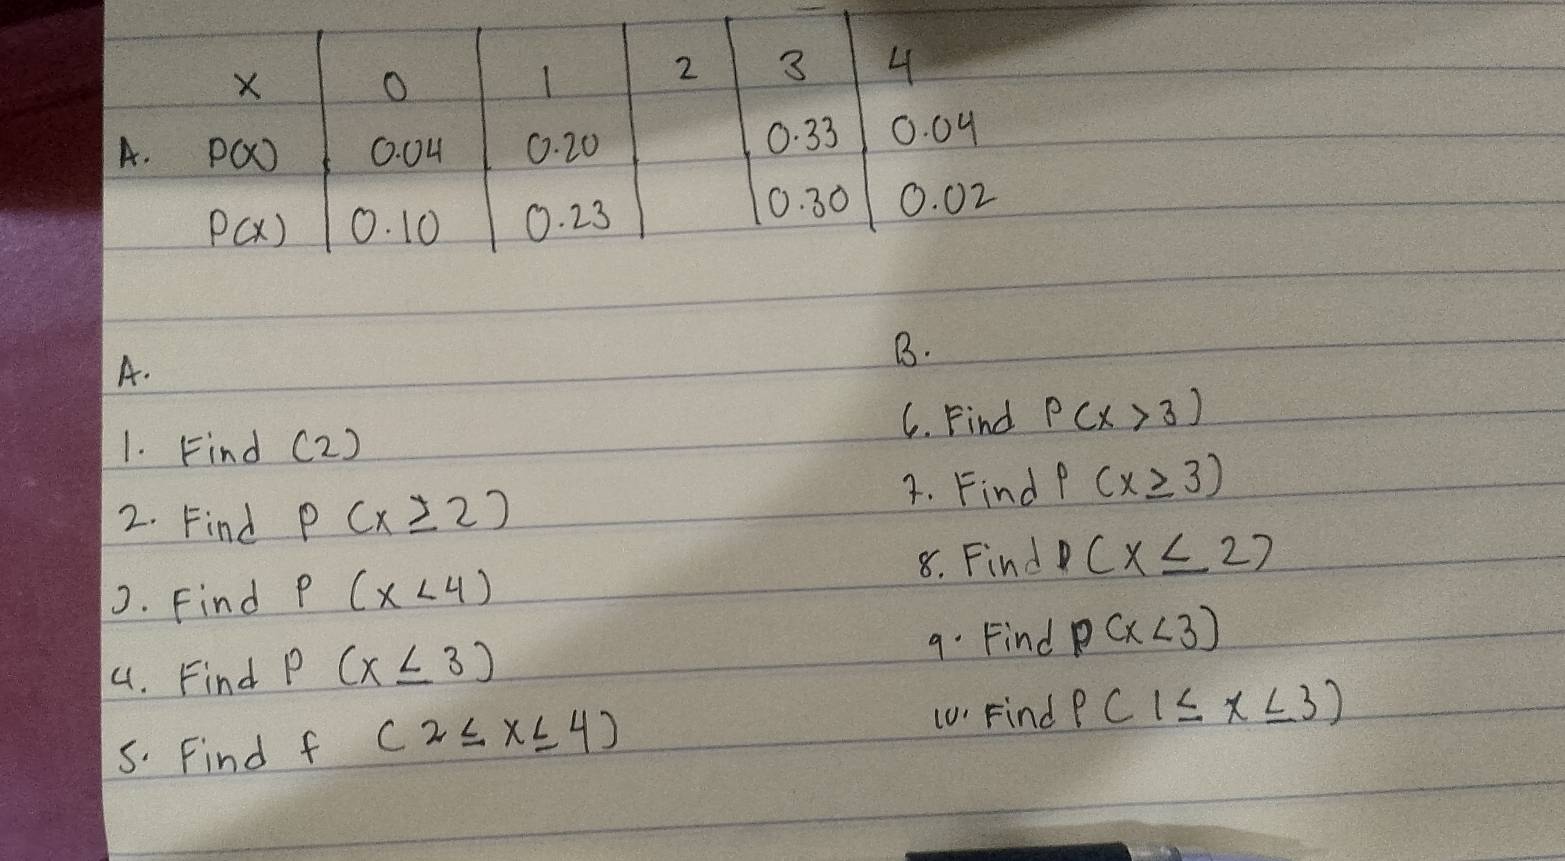 x 0 1 2 3 4
A. P(x) 0.04 0.20 0.33 0.04
P(x) 0.10 0.23 0.30 0.02
A.
1. Find (2)
2. Find P (x ≥ 2)
3. Find P (x < 4)
4. Find P (x ≤ 3)
5. Find f (2 ≤ x ≤ 4)
B.
6. Find P (x > 3)
7. Find P (x ≥ 3)
8. Find P (x ≤ 2)
9. Find P (x < 3)
10. Find P (1 ≤ x ≤ 3)